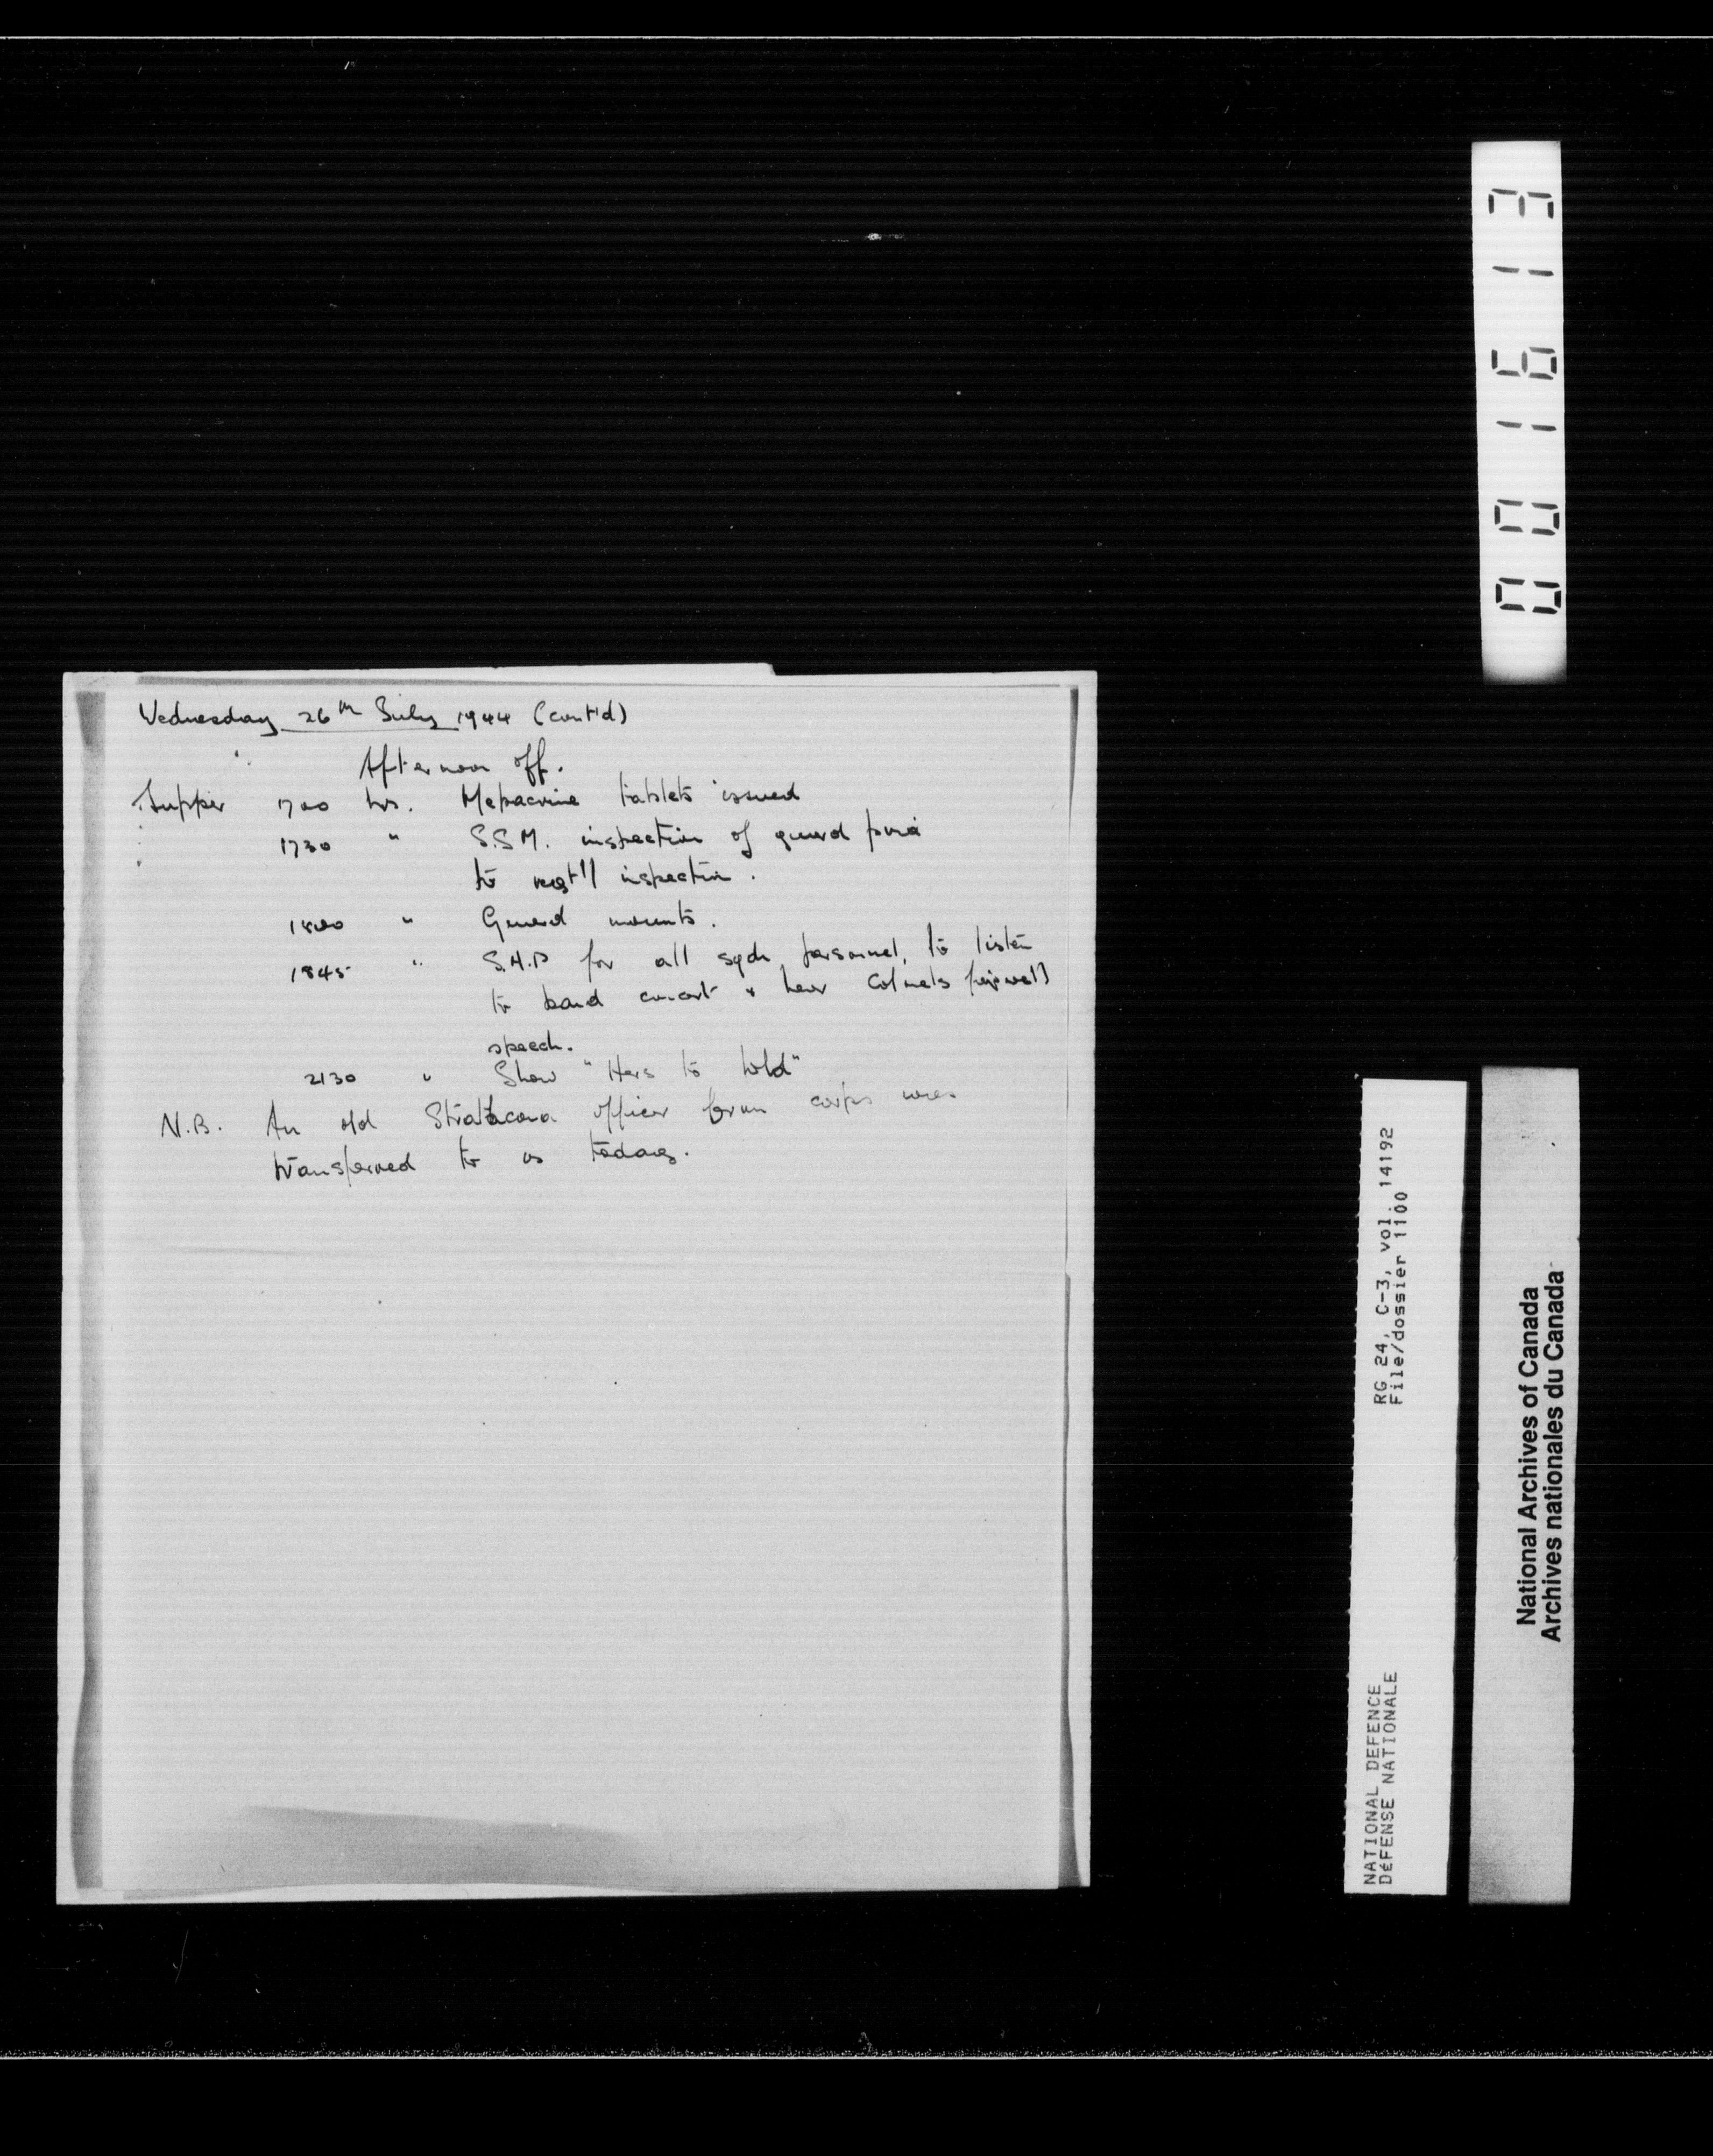 Wednesday 26th July 1944 (cont'd)
Afternoon off.
Supper 1700 hrs. Mepacrine tablets issued
1730 " S.S.M. inspection of guard prior
to regt'l inspection.
1800 " Guard mounts.
1845 " S.H.P for all sqdn personnel, to listen
to band concert & hear Colonels farewell
speech.
2130 " Show "Hers to hold"
N.B. An old Strathcona officer from corps was
transferred to us today.
001613
RG 24, C-3, vol. 14192
File/dossier 1100
NATIONAL DEFENCE
DéFENSE NATIONALE
National Archives of Canada
Archives nationales du Canada